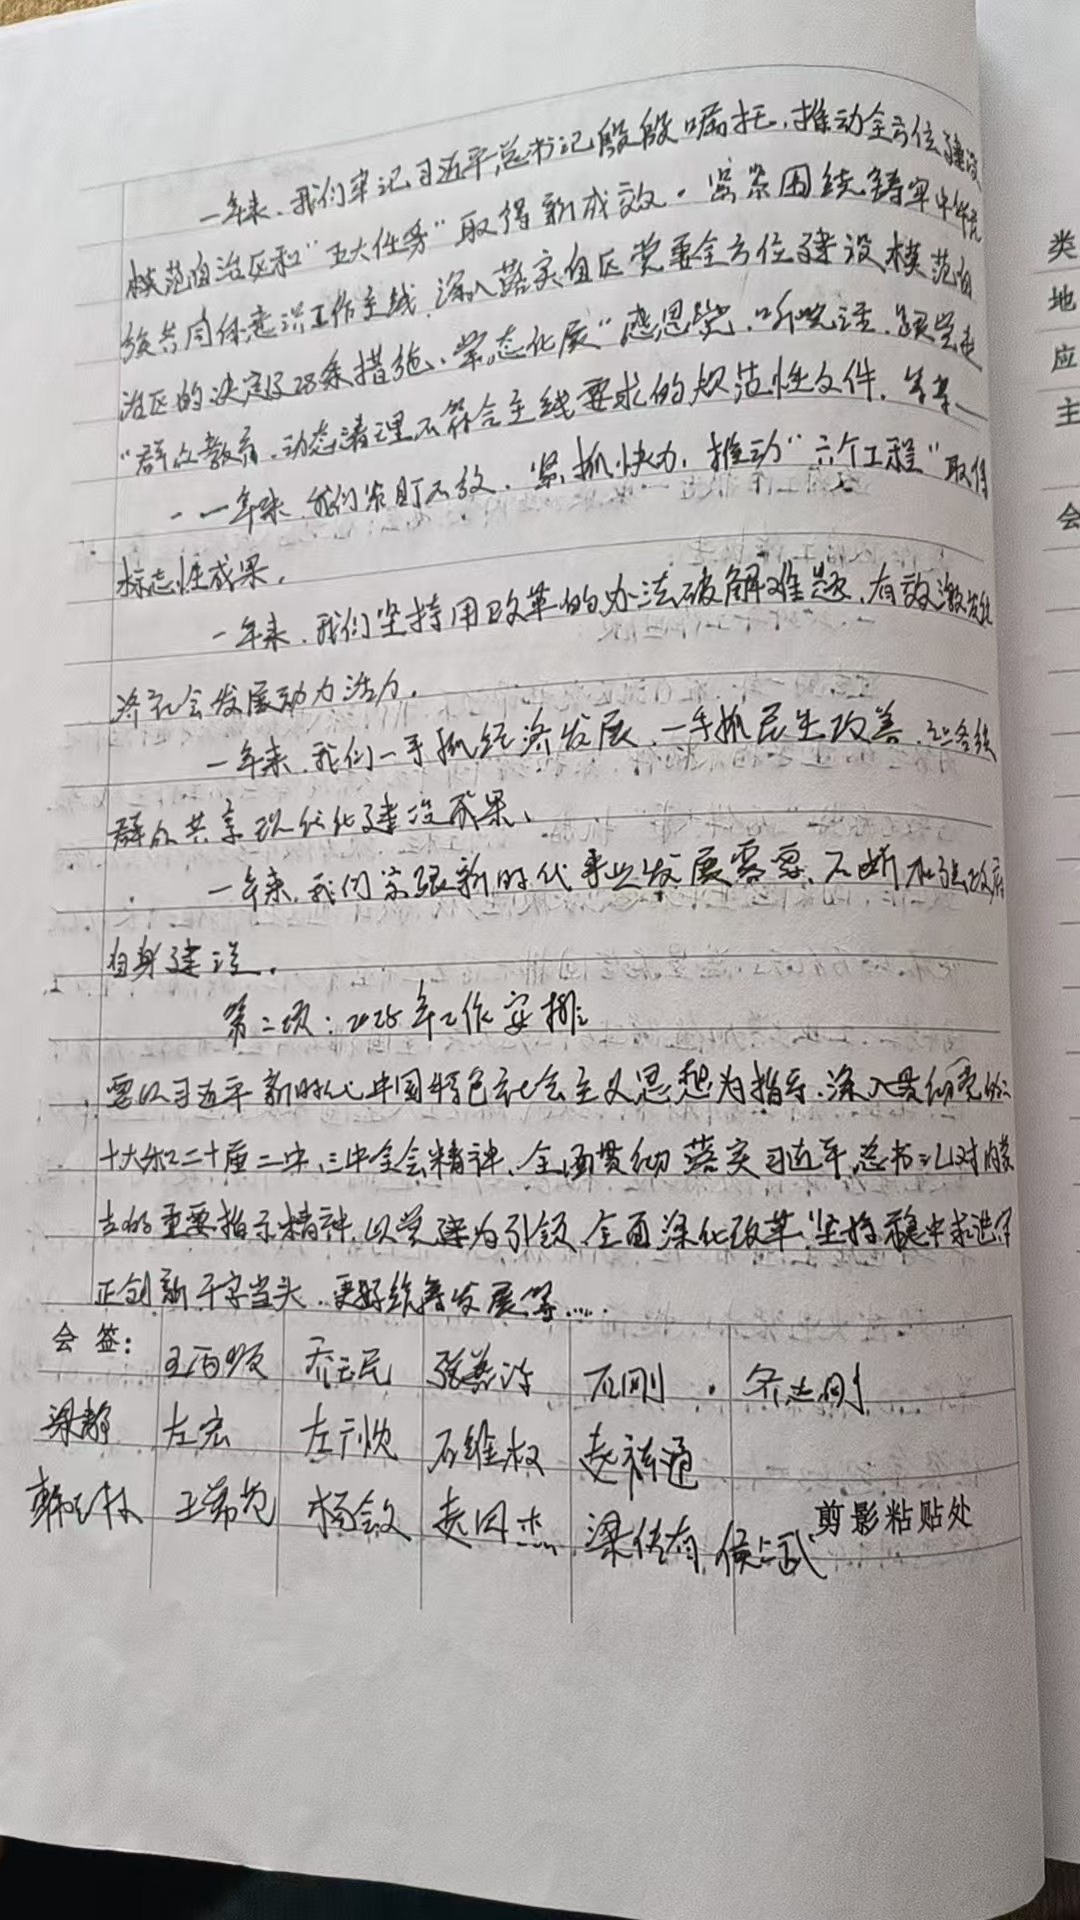 一年来，我们牢记习近平总书记殷殷嘱托，推动全方位建设
模范自治区和“五大任务”取得新成效。紧紧围绕铸牢中华民
族共同体意识工作主线，深入落实自区党委全方位建设模范自
治区的决定及28条措施、常态化展“感恩党，听党话，跟党走
”群众教育，动态清理不符合主线要求的规范性文件，等等——
一年来，我们紧盯不放，紧抓快办，推动“六个工程”取得
标志性成果。
一年来，我们坚持用改革的办法破解难题，有效激发经
济社会发展动力活力。
一年来，我们一手抓经济发展，一手抓民生改善，让各族
群众共享现代化建设成果、
一年来，我们紧跟新时代事业发展需要，不断加强政府
自身建设。
第二项：2025年工作安排
要以习近平新时代中国特色社会主义思想为指导，深入贯彻党的二
十大和二十届二中、三中全会精神，全面贯彻落实习近平总书记对内蒙
古的重要指示精神，以党建为引领，全面深化改革，坚持稳中求进守
正创新干字当头，更好统筹发展等……
会签： 乔云民 石刚
梁静 左宏 石维权 赵祯通
杨敛
剪影粘贴处
类
地
应
主
会